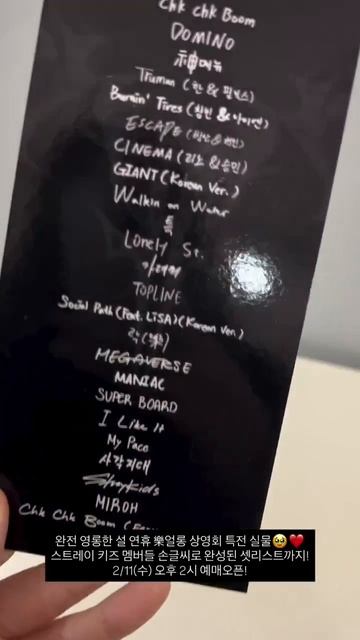 Chk Chk Boom
DOMINO
神메뉴
Truman (한 & 필릭스)
Burnin' Tires (창빈 & 아이엔)
ESCAPE (방찬 & 현진)
CINEMA (리노 & 승민)
GIANT (Korean Ver.)
Walkin on Water
특
Lonely St.
TOPLINE
Social Path (Feat. LiSA) (Korean Ver.)
락(樂)
MEGAVERSE
MANIAC
SUPER BOARD
I Like It
My Pace
사각지대
Stray Kids
MIROH
Chk Chk Boom
완전 영롱한 설 연휴 樂얼롱 상영회 특전 실물🥹❤️
스트레이 키즈 멤버들 손글씨로 완성된 셋리스트까지!
2/11(수) 오후 2시 예매오픈!